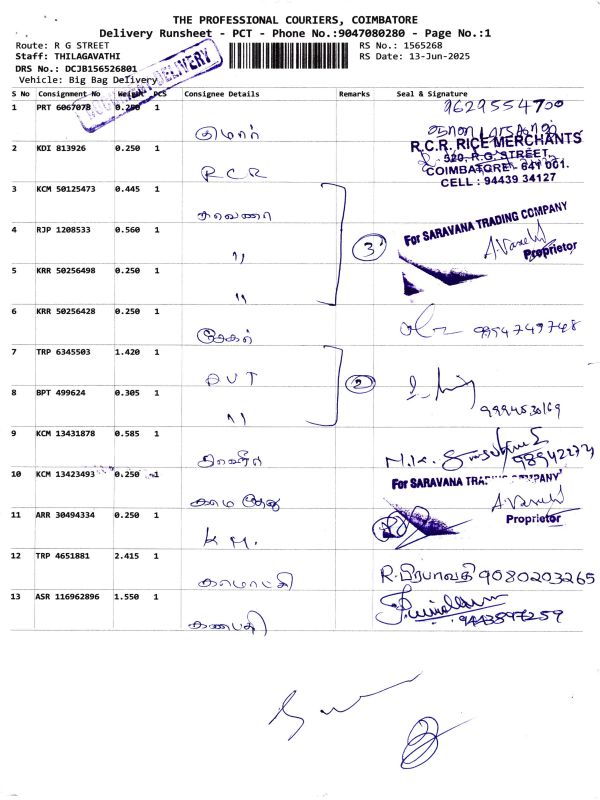 THE PROFESSIONAL COURIERS, COIMBATORE
Delivery Runsheet - PCT - Phone No.:9047080280 - Page No.:1
Route: R G STREET
RS No.: 1565268
Staff: THILAGAVATHI
RS Date: 13-Jun-2025
DRS No.: DCJB156526801
Vehicle: Big Bag Delivery
DELIVERY
S No Consignment No Weight PCS Consignee Details Remarks Seal & Signature
1 PRT 6067078 0.250 1 9629554700
குமார்
2 KDI 813926 0.250 1
R.C.R. RICE MERCHANTS
520, R.G. STREET,
COIMBATORE - 641 001.
CELL : 94439 34127
R C R
3 KCM 50125473 0.445 1
சரவணா
For SARAVANA TRADING COMPANY
4 RJP 1208533 0.560 1
"
3
Proprietor
5 KRR 50256498 0.250 1
"
6 KRR 50256428 0.250 1
9994749748
7 TRP 6345503 1.420 1
P V T
2
8 BPT 499624 0.305 1
"
9 KCM 13431878 0.585 1
N.K.
10 KCM 13423493 0.250 1
For SARAVANA TRADING COMPANY
காமதேனு
11 ARR 30494334 0.250 1
Proprietor
K M.
12 TRP 4651881 2.415 1
R. பிரபாவதி 9080203265
காமாட்சி
13 ASR 116962896 1.550 1
9443597259
கணபதி